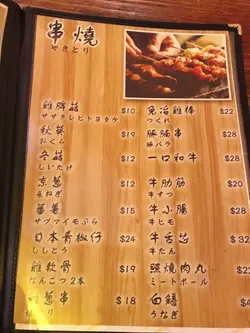 串燒
やきとり
雞髀菇 $10
ササタレヒトヨタケ
秋葵 $19
おくら
冬菇 $12
しいたけ
京蔥 $12
ねぎ
蕃薯 $15
サツマイモぷら
日本青椒仔 $24
ししとう
雞軟骨 $19
なんこつ2本
雞蔥串 $18
免治雞棒 $22
つくれ
豚腩串 $28
豚バラ
一口和牛
牛肋筋 $20
牛すつ
牛小腸 $28
牛ヒモ
牛舌芯 $32
牛たん
照燒肉丸 $22
ミートボール
白鱔
うなぎ